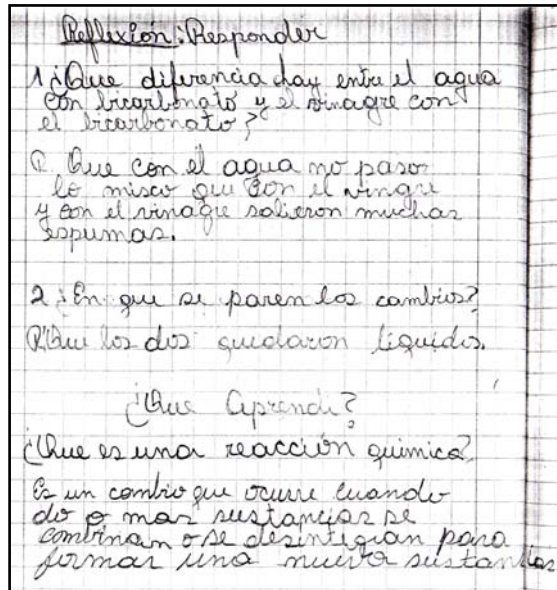 Reflexión: Responder
1 ¿Que diferencia hay entre el agua
con bicarbonato y el vinagre con
el bicarbonato?
R Que con el agua no paso
lo misco que con el vingre
y con el vinagre salieron muchas
espumas.
2 ¿En que se paren los cambios?
R Que los dos quedaron liquidos.
¿Que Aprendi?
¿Que es una reacción quimica?
Es un cambio que ocurre cuando
do o mas sustancias se
combinan o se desintegran para
formar una nueva sustancias